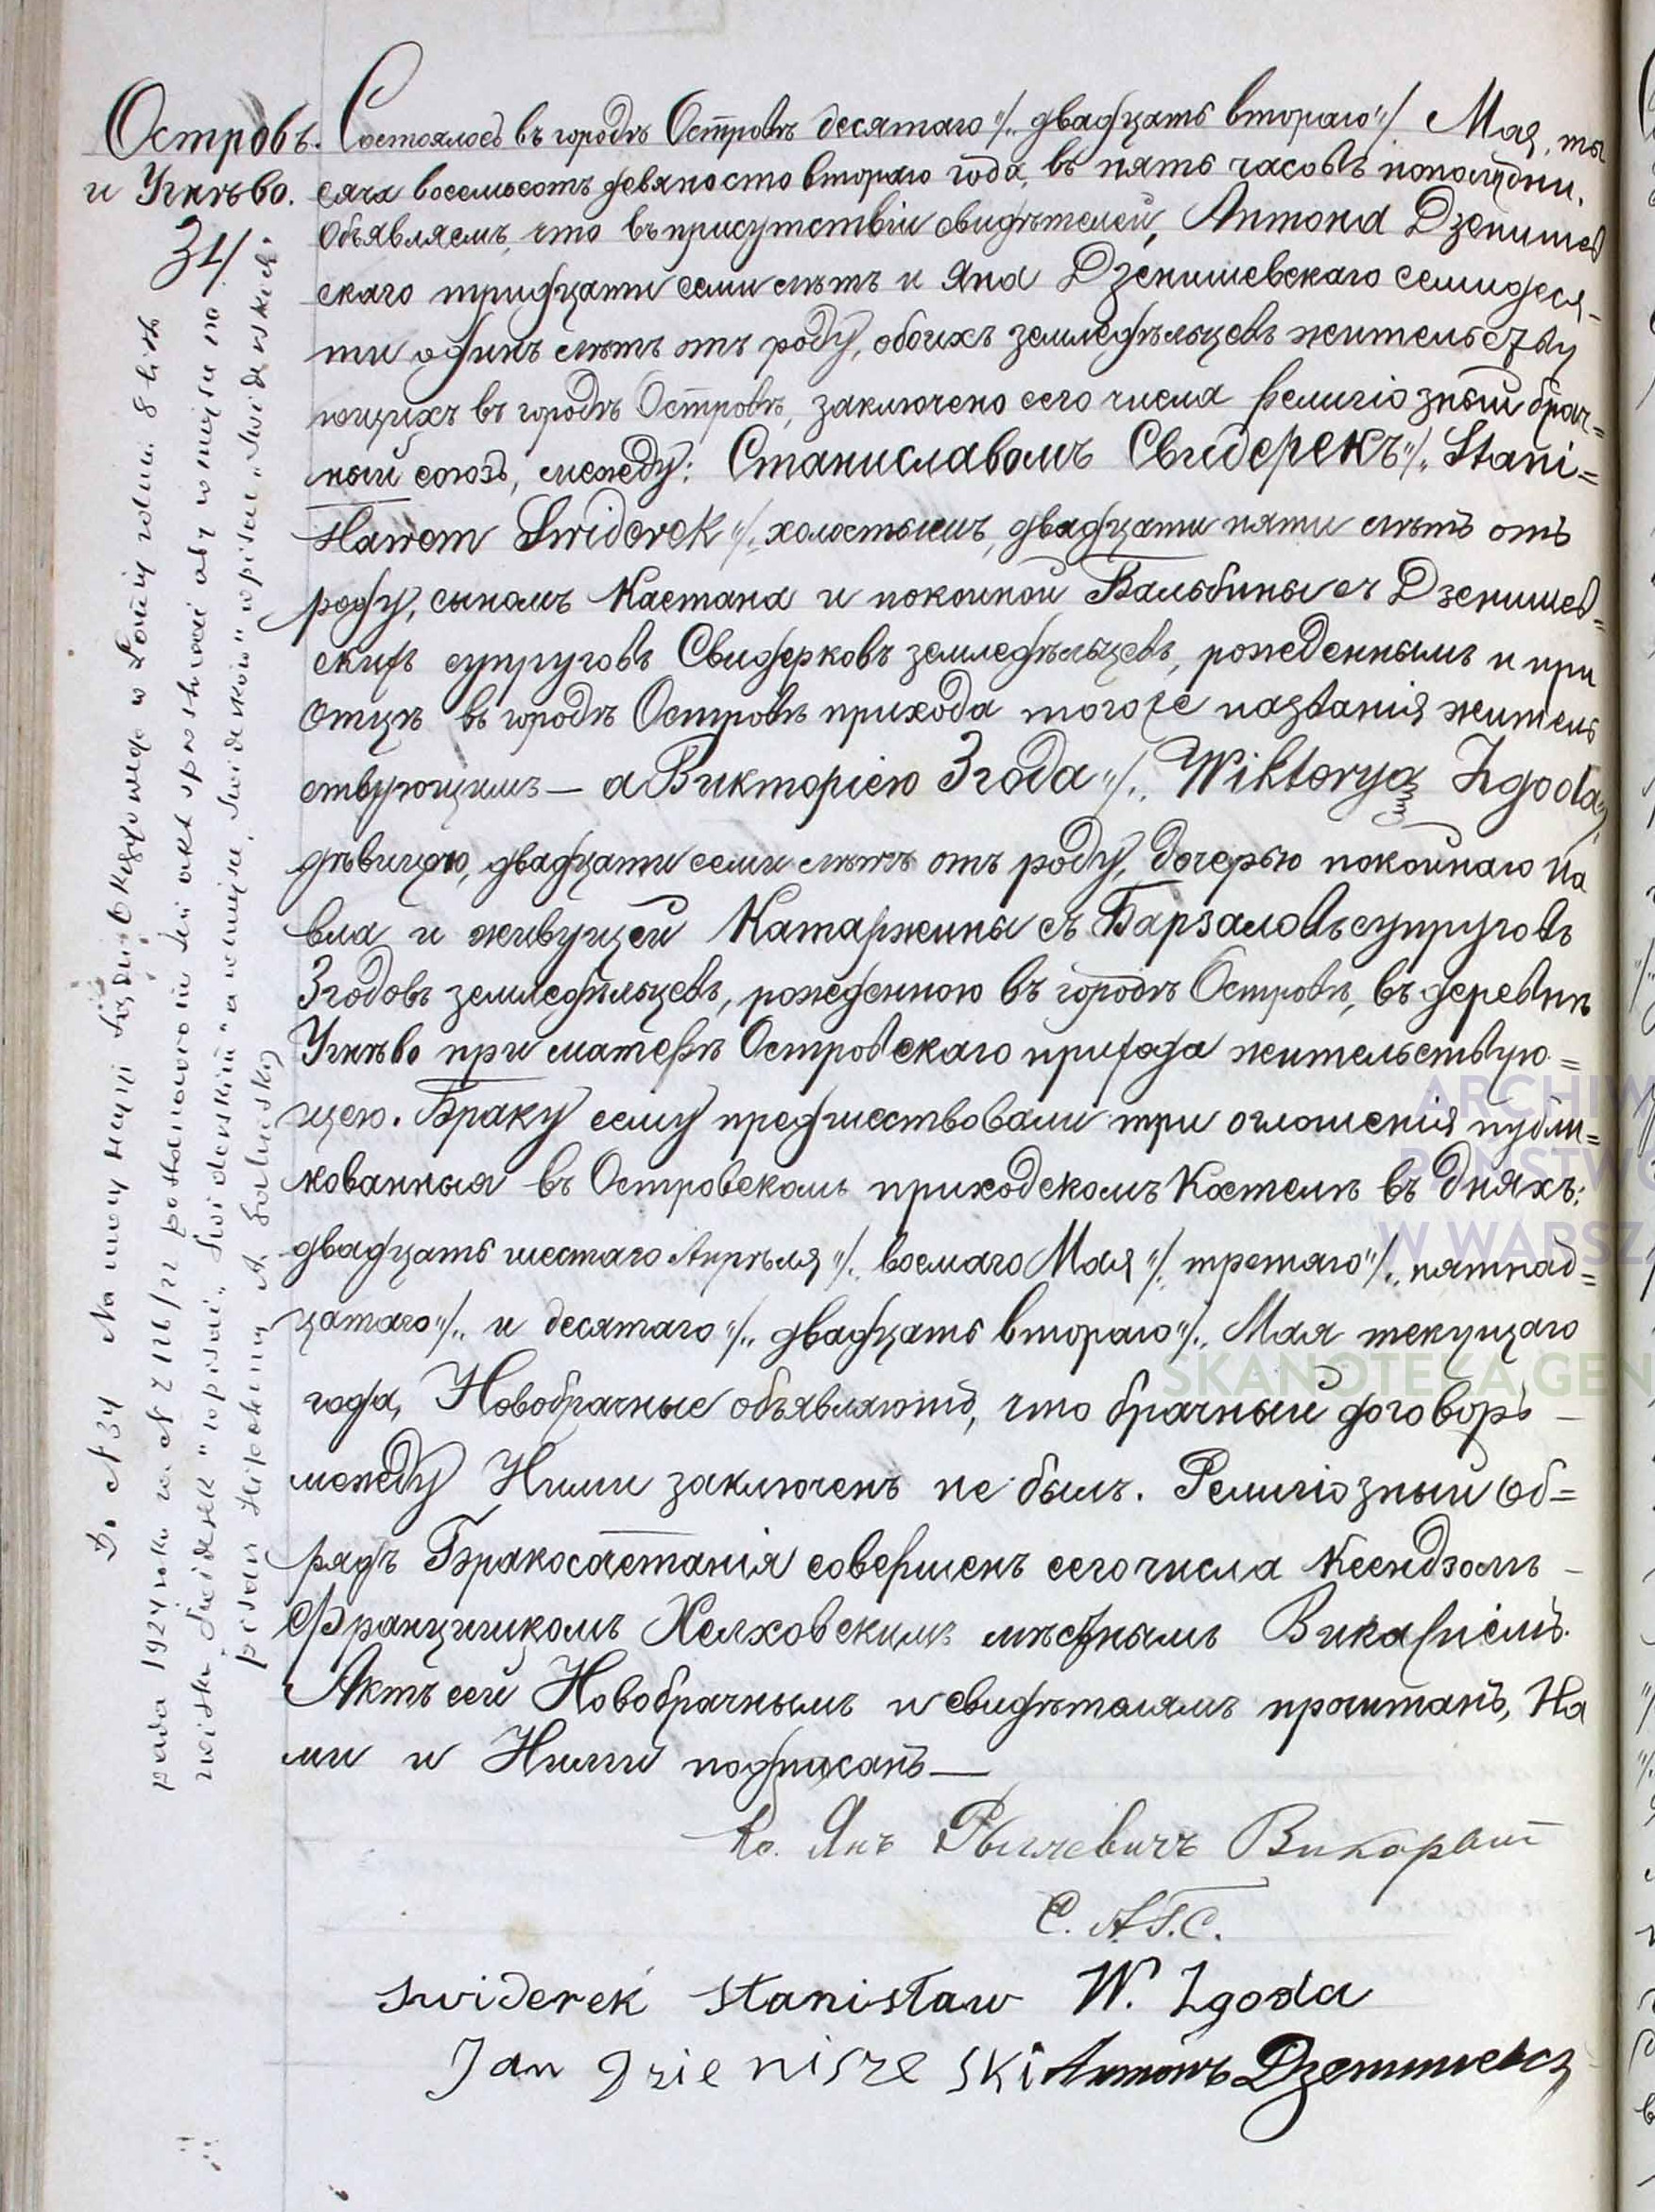 Островъ.
и Угнѣво.
34
Состоялось въ городѣ Островѣ десятаго /двадцать втораго/ Мая, ты
сяча восемьсотъ девяносто втораго года, въ пять часовъ пополудни.
Объявляемъ, что въ присутствіи свидѣтелей, Антона Дзенишев
скаго тридцати семи лѣтъ и Яна Дзенишевскаго семидеся-
ти одинъ лѣтъ отъ роду, обоихъ земледѣльцевъ жительству
ющихъ въ городѣ Островѣ, заключено сего числа религіозный брач=
ный союзъ, между: Станиславомъ Свидерекъ /Stani=
sławem Swiderek/ холостымъ, двадцати пяти лѣтъ отъ
роду, сыномъ Каетана и покойной Бальбины съ Дзенишев=
скихъ супруговъ Свидерковъ земледѣльцевъ, рожденнымъ и при
отцѣ въ городѣ Островѣ прихода того же названія житель
ствующимъ — а Викторіею Згода /Wiktoryą Zgoda/
дѣвицею, двадцати семи лѣтъ отъ роду, дочерью покойнаго Па
вла и живущей Катаржины съ Барзаловъ супруговъ
Згодовъ земледѣльцевъ, рожденною въ городѣ Островѣ, въ деревнѣ
Угнѣво при матерѣ Островскаго прихода жительствую=
щею. Браку сему предшествовали три оглошенія публи=
кованныя въ Островскомъ приходскомъ Костелѣ въ дняхъ:
двадцать шестаго Апрѣля /восмаго Мая/ третаго /пятнад=
цатаго/ и десятаго /двадцать втораго/ Мая текущаго
года, Новобрачные объявляютъ, что брачный договоръ —
между Ними заключенъ не былъ. Религіозный об=
рядъ Бракосочетанія совершенъ сего числа Ксендзомъ —
Францишкомъ Хелховскимъ мѣстнымъ Викаріемъ.
Актъ сей Новобрачнымъ и свидѣтелямъ прочитанъ, На
ми и Ними подписанъ —
Кс. Янъ Викарый
С. А. Г. С.
Swiderek Stanisław W. Zgoda
Jan Dzienisze ski Антонъ Дзенишевск
Do № 34 Na mocy decyzji Sądu Okręgowego w Łomży z dnia 8 listo
pada 1924 roku za № Z 126/22 postanowiono ten akt sprostować aby w miejscu na
zwiska „Swiderek" wpisać „Swiderski" a w miejscu „Swiderków" wpisać „Swiderskich".
pisarz hipoteczny
ARCHIW
PAŃSTWO
W WARSZA
SKANOTEKA GEN